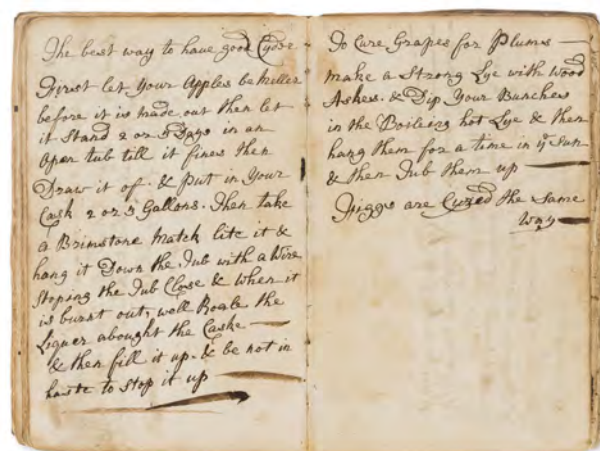 The best way to have good Cyder
First let Your Apples be Meller
before it is made out then let
it Stand 2 or 3 Days in an
Open tub till it fines then
Draw it of. & put in Your
Cask 2 or 3 Gallons. Then take
a Brimstone Match lite it &
hang it Down the Tub with a Wire
Stoping the Tub Close & when it
is burnt out, well Roale the
Liquer abought the Caske
& then fill it up. & be not in
haste to stop it up
To Cure Grapes for Plums
make a Strong Lye with Wood
Ashes. & Dip Your Bunches
in the Boileing hot Lye & then
hang them for a time in ye Sun
& then Tub them up
Figgs are Cured the Same
Way